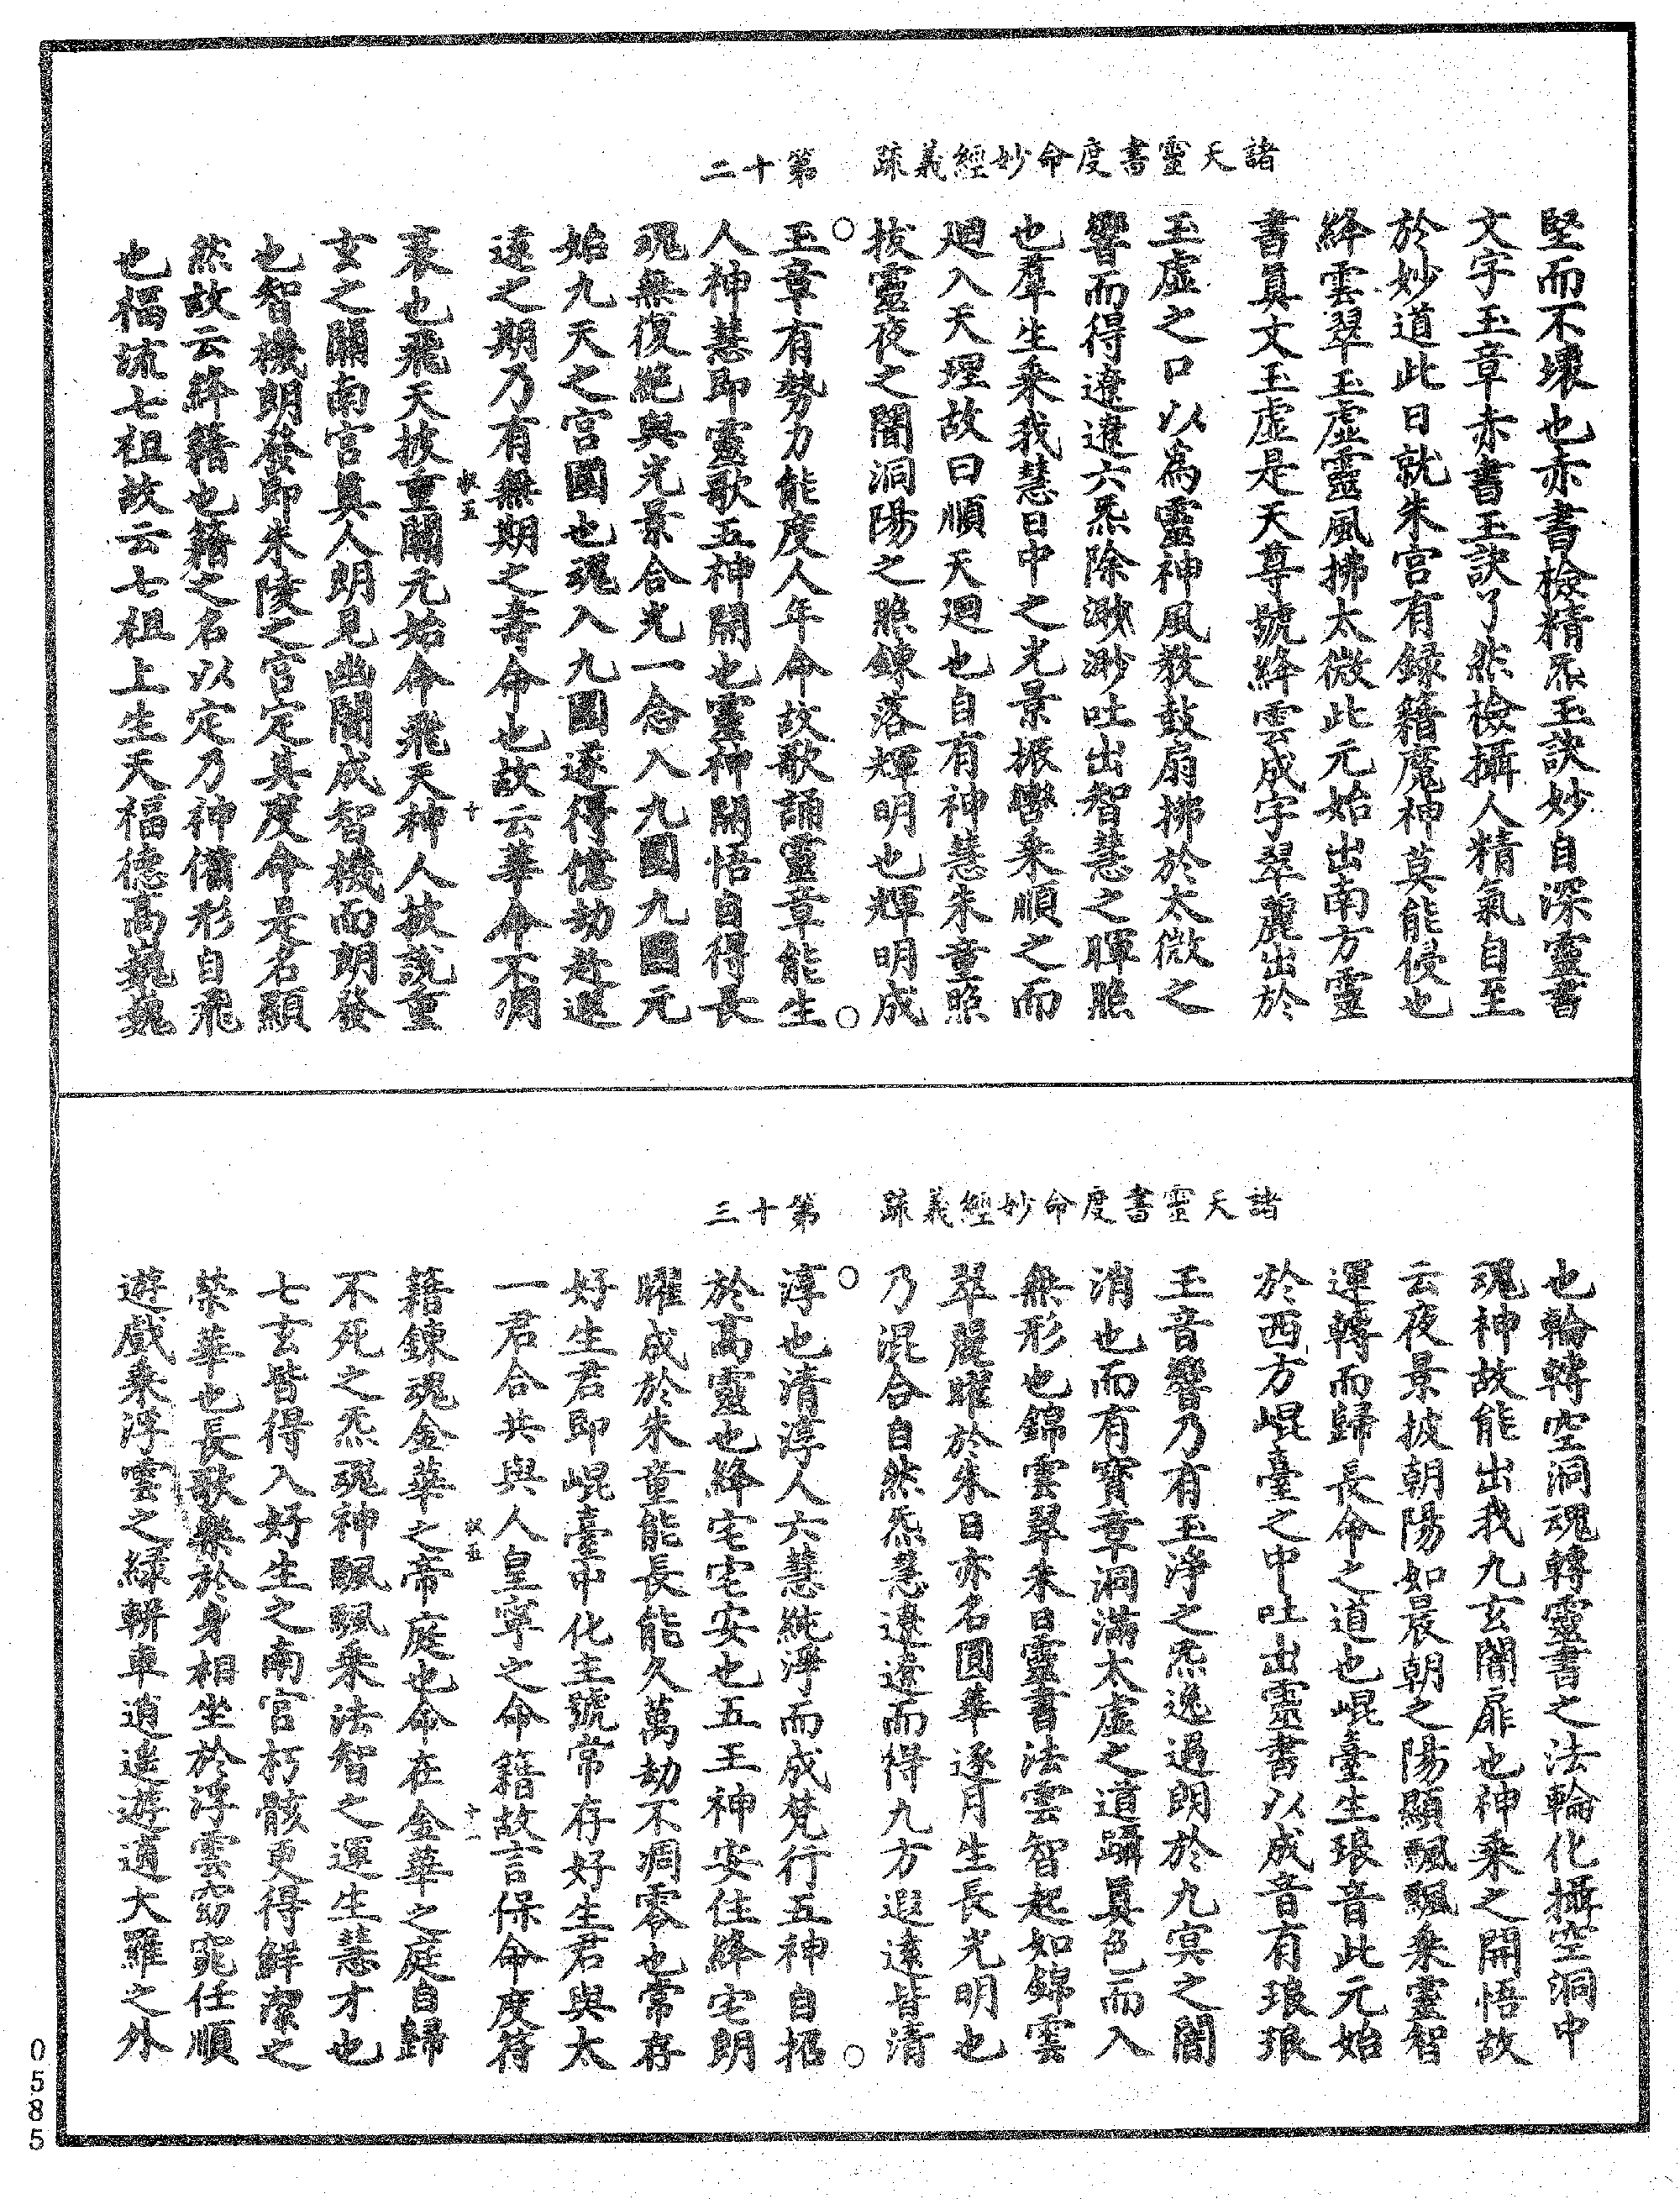 諸天靈書度命妙經義疏　第十二
堅而不壞也赤書檢精炁玉訣妙自深靈書
文字玉章赤書玉訣了然檢攝人精氣自至
於妙道此日就朱宮有録籍魔神莫能侵也
絳雲翠玉虛靈風拂太微此元始出南方靈
書真文玉虛是天尊號絳雲成字翠麗出於
玉虛之口以為靈神風教鼓扇拂於太微之
響而得遼遼六炁除渺渺吐出智慧之暉照
也羣生乘我慧日中之光景振響乘順之而
迴入天理故曰順天迴也自有神慧朱童照
拔靈夜之闇洞陽之照錬落輝明也輝明成
玉章有勢力能度人年命故歌誦靈章能生
人神慧即靈歌五神開也靈神開悟自得長
魂無復絶與光景合光一念入九圍九圍元
始九天之宮圍也魂入九圍遂得億劫遊遐
遠之期乃有無期之壽命也故云華命不凋
衰也飛天披重關元始命飛天神人披説重
玄之關南宮真人明見幽闇成智機而朗發
也智機朗發即朱陵之宮定其度命是名顯
然故云絳籍也籍之名以定乃神備形自飛
也福流七祖故云七祖上生天福德高巍巍
諸天靈書度命妙經義疏　第十三
也輪轉空洞魂轉靈書之法輪化攝空洞中
魂神故能出我九玄闇扉也神乘之開悟故
云夜景披朝陽如晨朝之陽顯飄飄乘靈智
運轉而歸長命之道也崐臺生琅音此元始
於西方崐臺之中吐出靈書以成音有琅琅
玉音響乃有玉淨之炁逸過朗於九冥之闇
消也而有寶章洞滿太虛之道躡真色而入
無形也錦雲翠朱日靈書法雲智起如錦雲
翠麗曜於朱日亦名圓華逐月生長光明也
乃混合自然炁慧遼遼而得九方遐遠皆清
淳也清淳人六慧純淨而成梵行五神自招
於高靈也絳宅宅安也五王神安住絳宅朗
曜成於朱童能長能久萬劫不凋零也常存
好生君即崐臺中化主號常存好生君與太
一君合共與人皇寧之命籍故言保命度符
籍錬魂金華之帝庭也命在金華之庭自歸
不死之炁魂神飄飄乘法智之運生慧才也
七玄皆得入好生之南宮朽骸更得鮮潔之
榮華也長歌樂於身相坐於浮雲窈窕任順
遊戲乘浮雲之緑輧車逍遙遊適大羅之外
0585